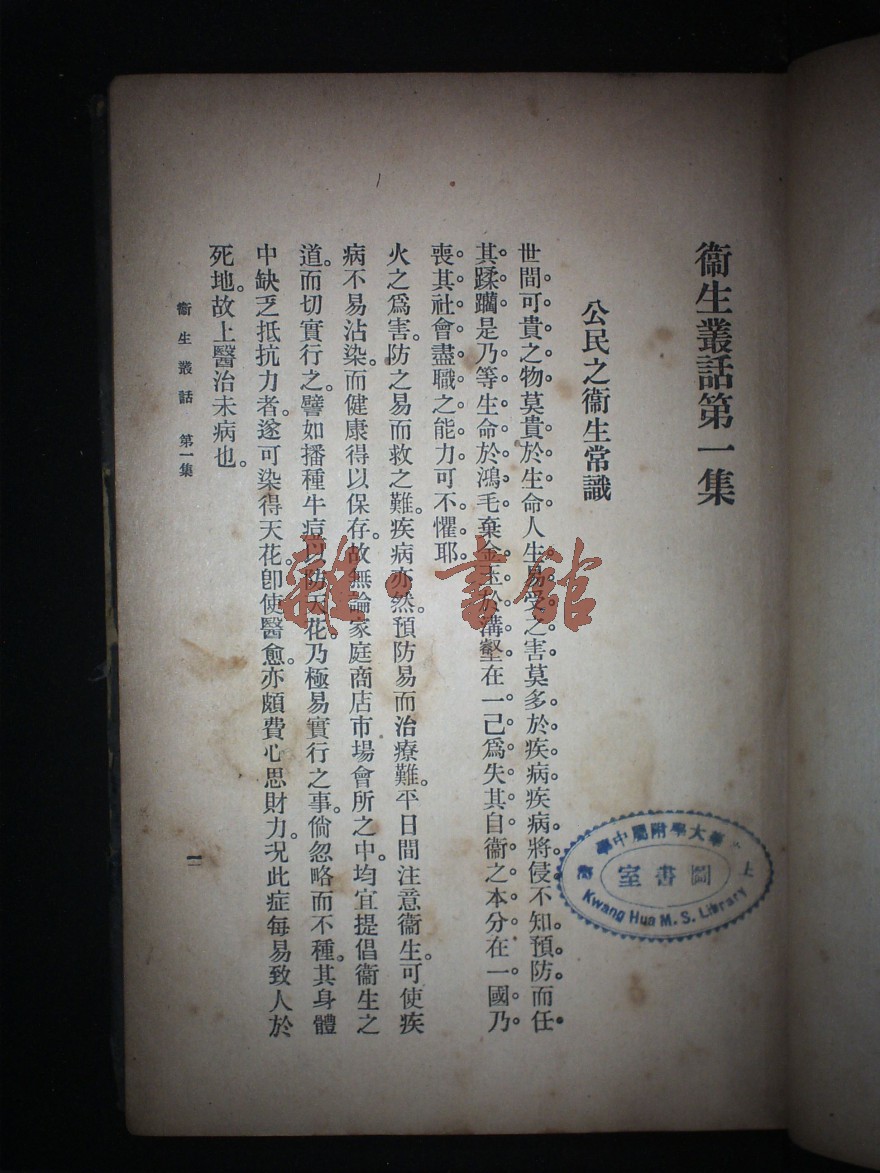 衞生叢話第一集
公民之衞生常識
世間可貴之物莫貴於生命人生易受之害莫多於疾病疾病將侵不知預防而任
其蹂躪是乃等生命於鴻毛棄金玉於溝壑在一己爲失其自衞之本分在一國乃
喪其社會盡職之能力可不懼耶
火之爲害。防之易而救之難。疾病亦然。預防易而治療難。平日間注意衞生。可使疾
病不易沾染。而健康得以保存。故無論家庭商店市場會所之中。均宜提倡衞生之
道。而切實行之。譬如播種牛痘以防天花。乃極易實行之事。倘忽略而不種。其身體
中缺乏抵抗力者。遂可染得天花。卽使醫愈。亦頗費心思財力。况此症每易致人於
死地。故上醫治未病也。
衞生叢話 第一集
一
雜·書館
上 華大學附屬中學
圖書室
Kwang Hua M. S. Library